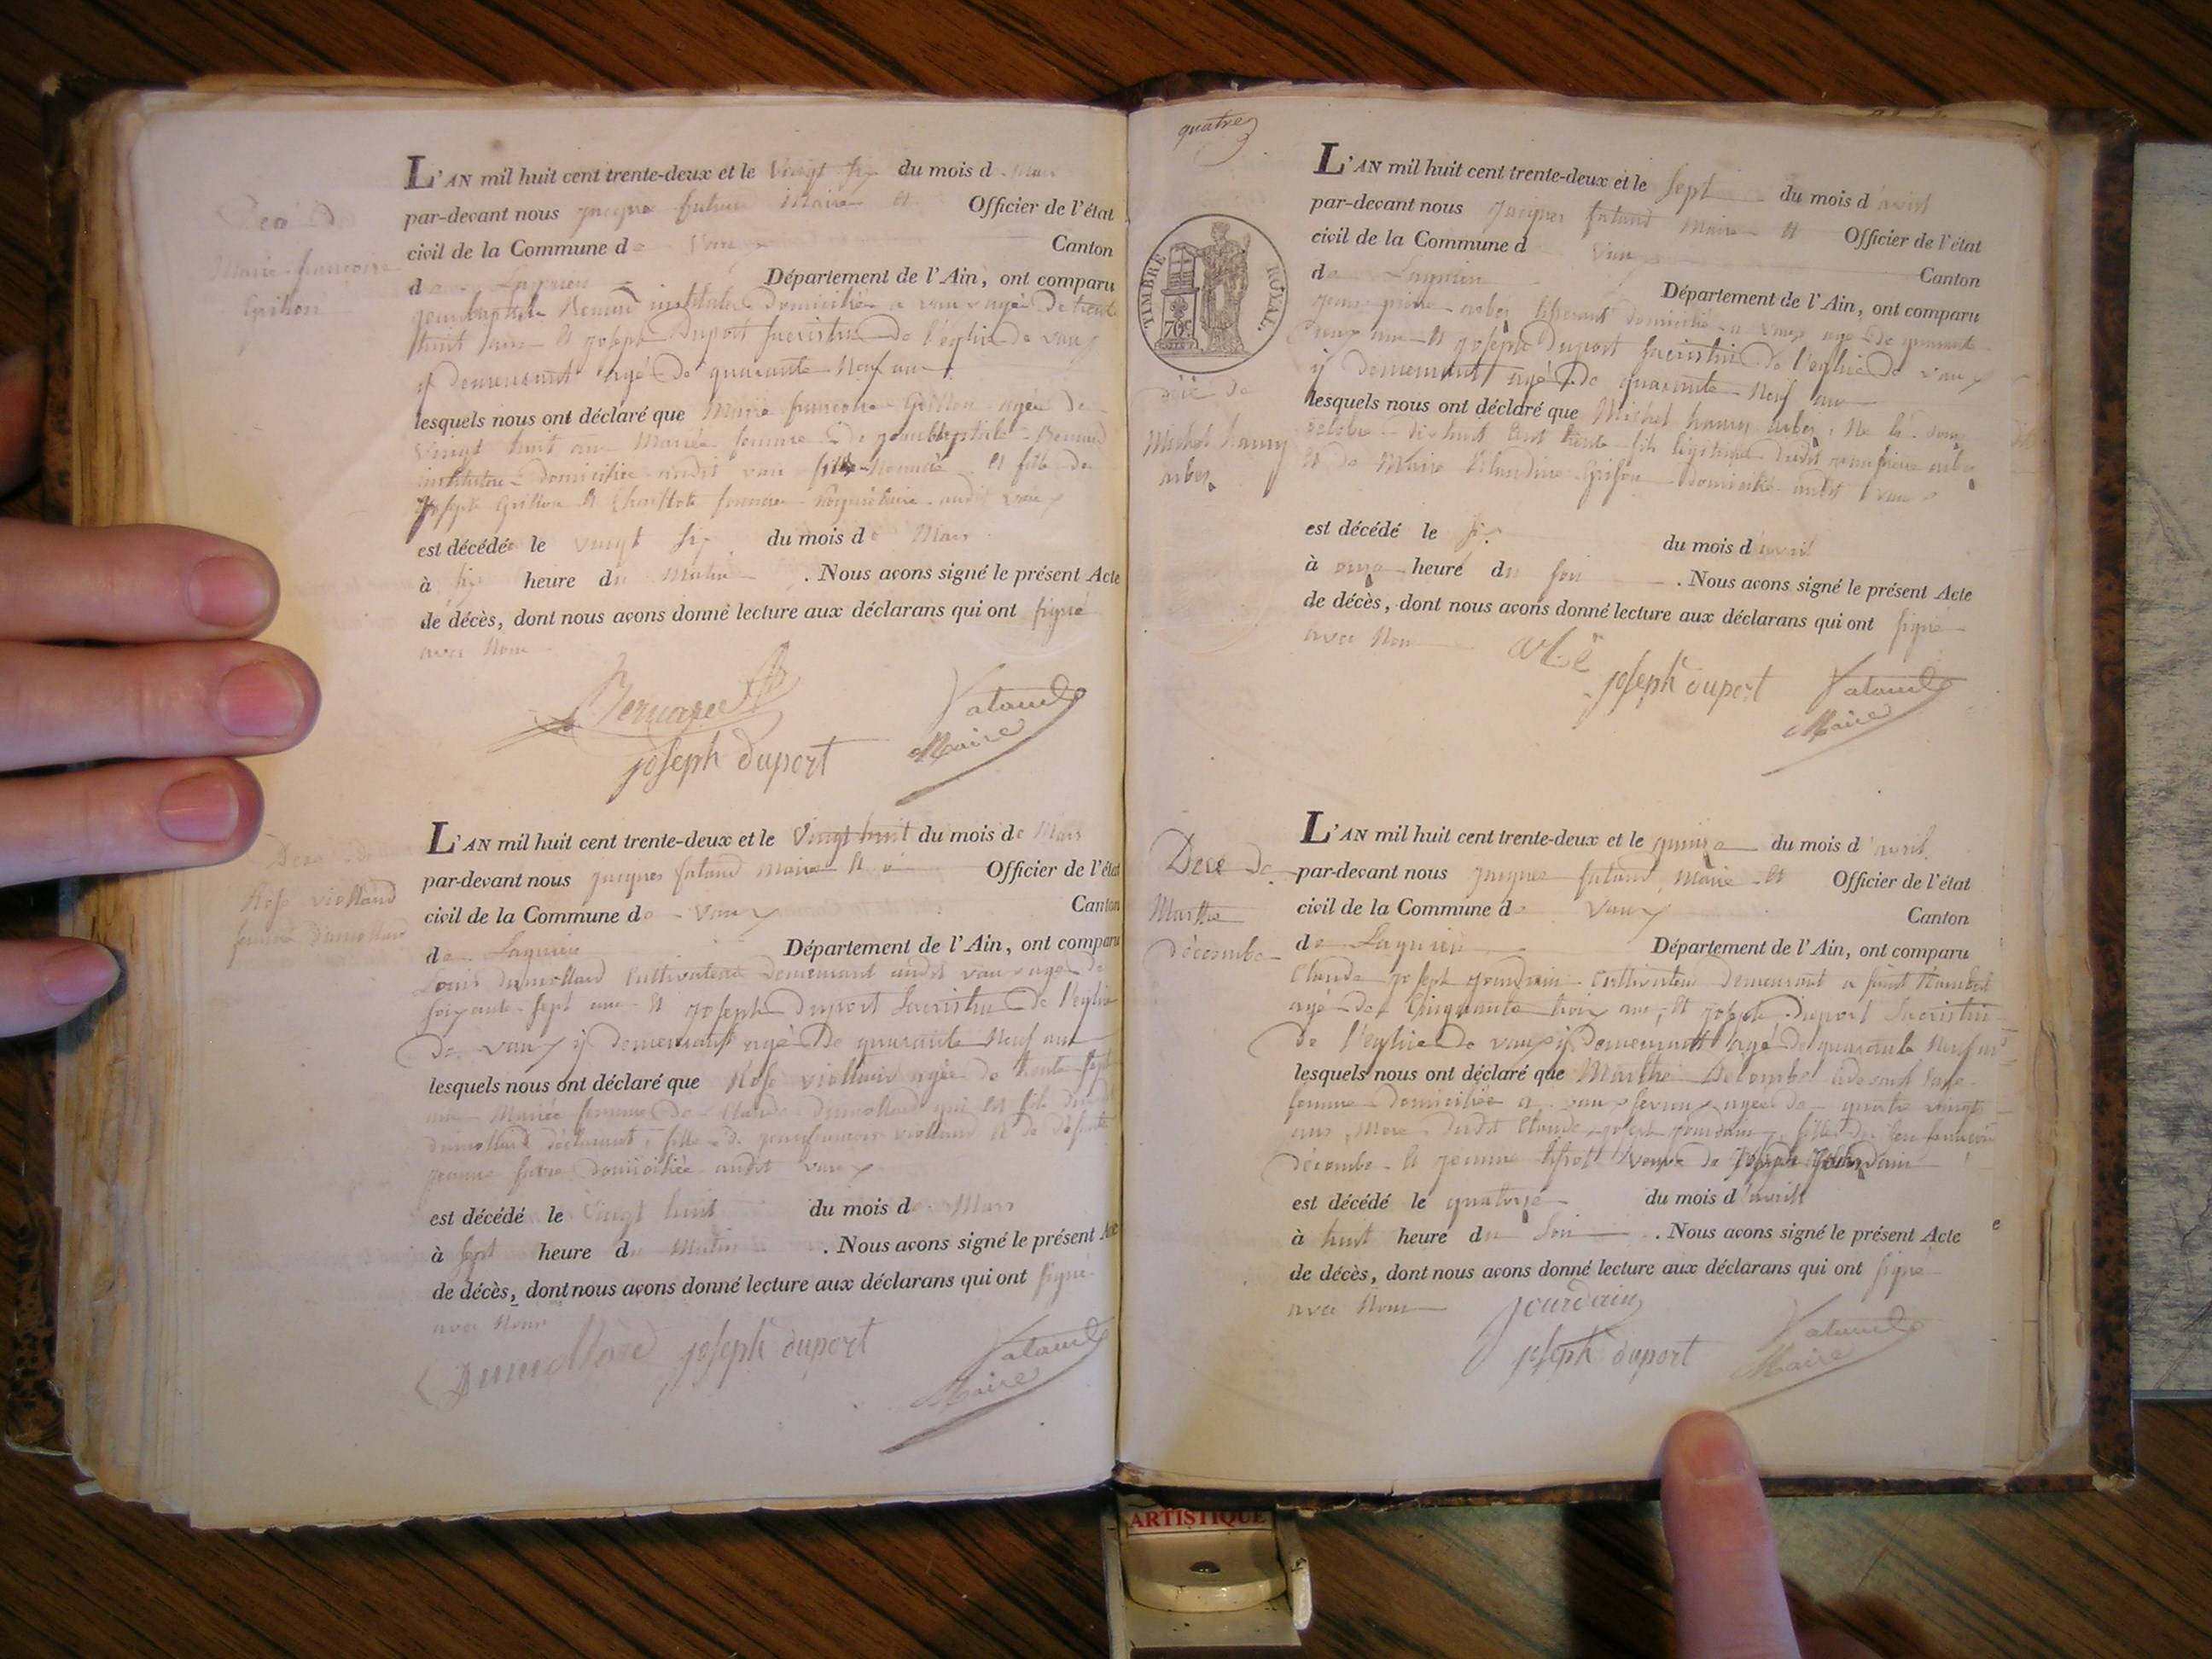 Marie françoise
Grillon
L'AN mil huit cent trente-deux et le Vingt six du mois de Mars
par-devant nous jacques fataud Maire et Officier de l'état
civil de la Commune de Vaux Canton
de Lagnieu Département de l'Ain, ont comparu
jeanbaptiste institateur domicilié a vaux agé de trente
huit ans et joseph Duport sacristin de l'eglise de vaux
y demeurant agé de quarante neuf ans
lesquels nous ont déclaré que Marie françoise Grillon agée de
vingt huit ans Mariée femme de jeanbaptiste
domiciliée audit vaux et fille de
joseph Grillon et Charlotte audit vaux
est décédée le vingt six du mois de Mars
à six heure du Matin . Nous avons signé le présent Acte
de décès, dont nous avons donné lecture aux déclarans qui ont signé
avec Nous
joseph duport
fataud
Maire
Rose viollaud
femme dumollard
L'AN mil huit cent trente-deux et le Vingt huit du mois de Mars
par-devant nous jacques fataud Maire et Officier de l'état
civil de la Commune de Vaux Canton
de Lagnieu Département de l'Ain, ont comparu
Louis dumollard Cultivateur demeurant audit vaux agé de
soixante sept ans et joseph Duport Sacristin de l'eglise
de vaux y demeurant agé De quarante Neuf ans
lesquels nous ont déclaré que Rose agée de trente sept
ans Mariée femme de Claude dumollard qui est fils du
dumollard déclarant, fille de jeanfrançois viollaud et de défunte
jeanne favre domiciliée audit vaux
est décédé le Vingt huit du mois de Mars
à sept heure du Matin . Nous avons signé le présent Acte
de décès, dont nous avons donné lecture aux déclarans qui ont signé
avec Nous
Dumollard joseph duport
fataud
Maire
quatre
TIMBRE ROYAL.
Michel
arbez
L'AN mil huit cent trente-deux et le sept du mois d'avril
par-devant nous jacques fataud Maire et Officier de l'état
civil de la Commune d Vaux Canton
de Lagnieu Département de l'Ain, ont comparu
jean pierre arbez tisserand domicilié a vaux agé de quarante
deux ans et joseph duport sacristin de l'eglise de vaux
y demeurant agé de quarante Neuf ans
lesquels nous ont déclaré que Michel arbez, Né le
octobre dix huit Cent trente fils légitime dudit jeanpierre arbez
et de Marie Claudine domicilié audit vaux
est décédé le six du mois d'avril
à onze heure du soir . Nous avons signé le présent Acte
de décès, dont nous avons donné lecture aux déclarans qui ont signé
avec Nous
joseph duport
fataud
Maire
Decé de
Marthe
décombe
L'AN mil huit cent trente-deux et le quinze du mois d'avril
par-devant nous jacques fataud, Maire et Officier de l'état
civil de la Commune de Vaux Canton
de Lagnieu Département de l'Ain, ont comparu
Claude joseph jourdain Cultivateur demeurant a saint Rambert
agé de Cinquante trois ans, et joseph duport Sacristin
de l'eglise de vaux y demeurant agé de quarante Neuf ans
lesquels nous ont déclaré que Marthe Décombe sage
femme domiciliée a vaux agée de quatre vingt
ans, Mere dudit Claude joseph jourdain, fille de feu
décombe et jeanne Veuve de joseph jourdain
est décédé le quatorze du mois d'avril
à huit heure du Soir . Nous avons signé le présent Acte
de décès, dont nous avons donné lecture aux déclarans qui ont signé
avec Nous
jourdain
joseph duport
fataud
Maire
ARTISTIQUE